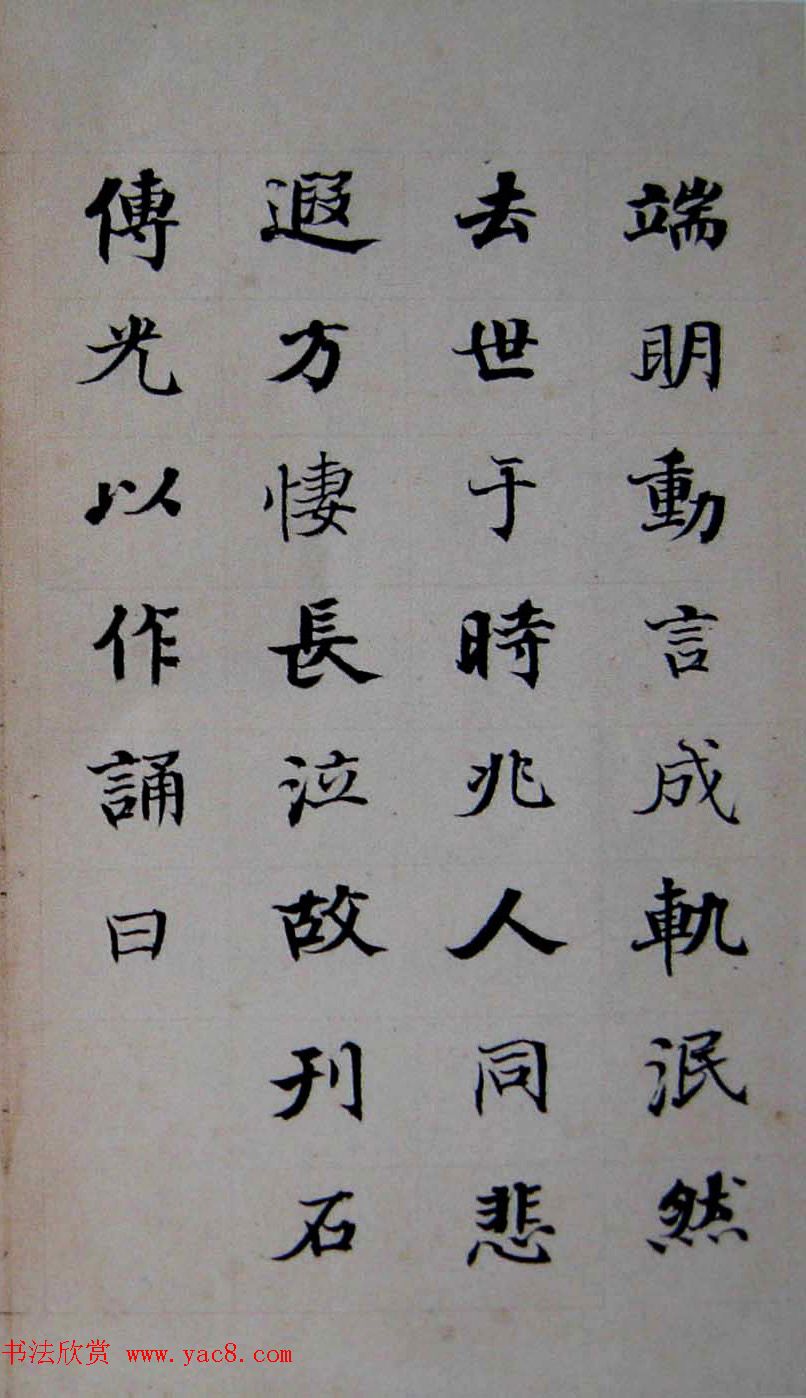 端明動言成軌泯然
去世于時兆人同悲
遐方悽長泣故刊石
傳光以作誦曰
书法欣赏 www.yac8.com